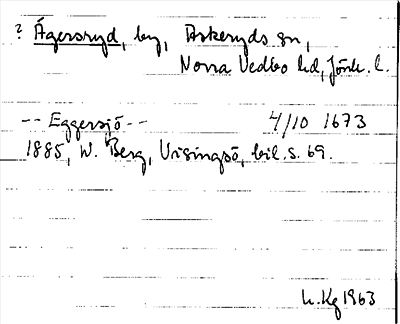 ? Ägersryd, by, Askeryds sn,
Norra Vedbo hd, Jönk. l.
-- Eggersjö -- 4/10 1673
1885, W. Berg, Visingsö, bil. s. 69.
L. Kg 1963